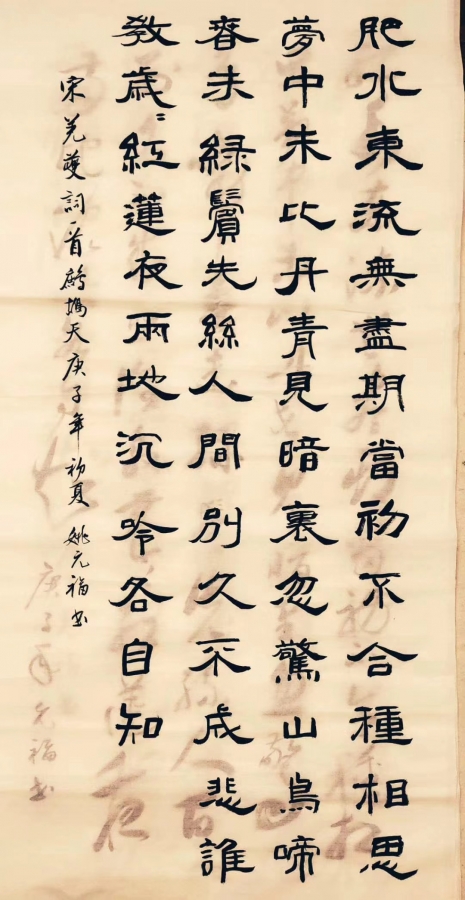 肥水東流無盡期當初不合種相思
夢中未比丹青見暗裏忽驚山鳥啼
春未緑鬢先絲人間別久不成悲誰
教歳〻紅蓮夜兩地沉吟各自知
宋姜夔詞一首鷓鴣天庚子年初夏姚元福书